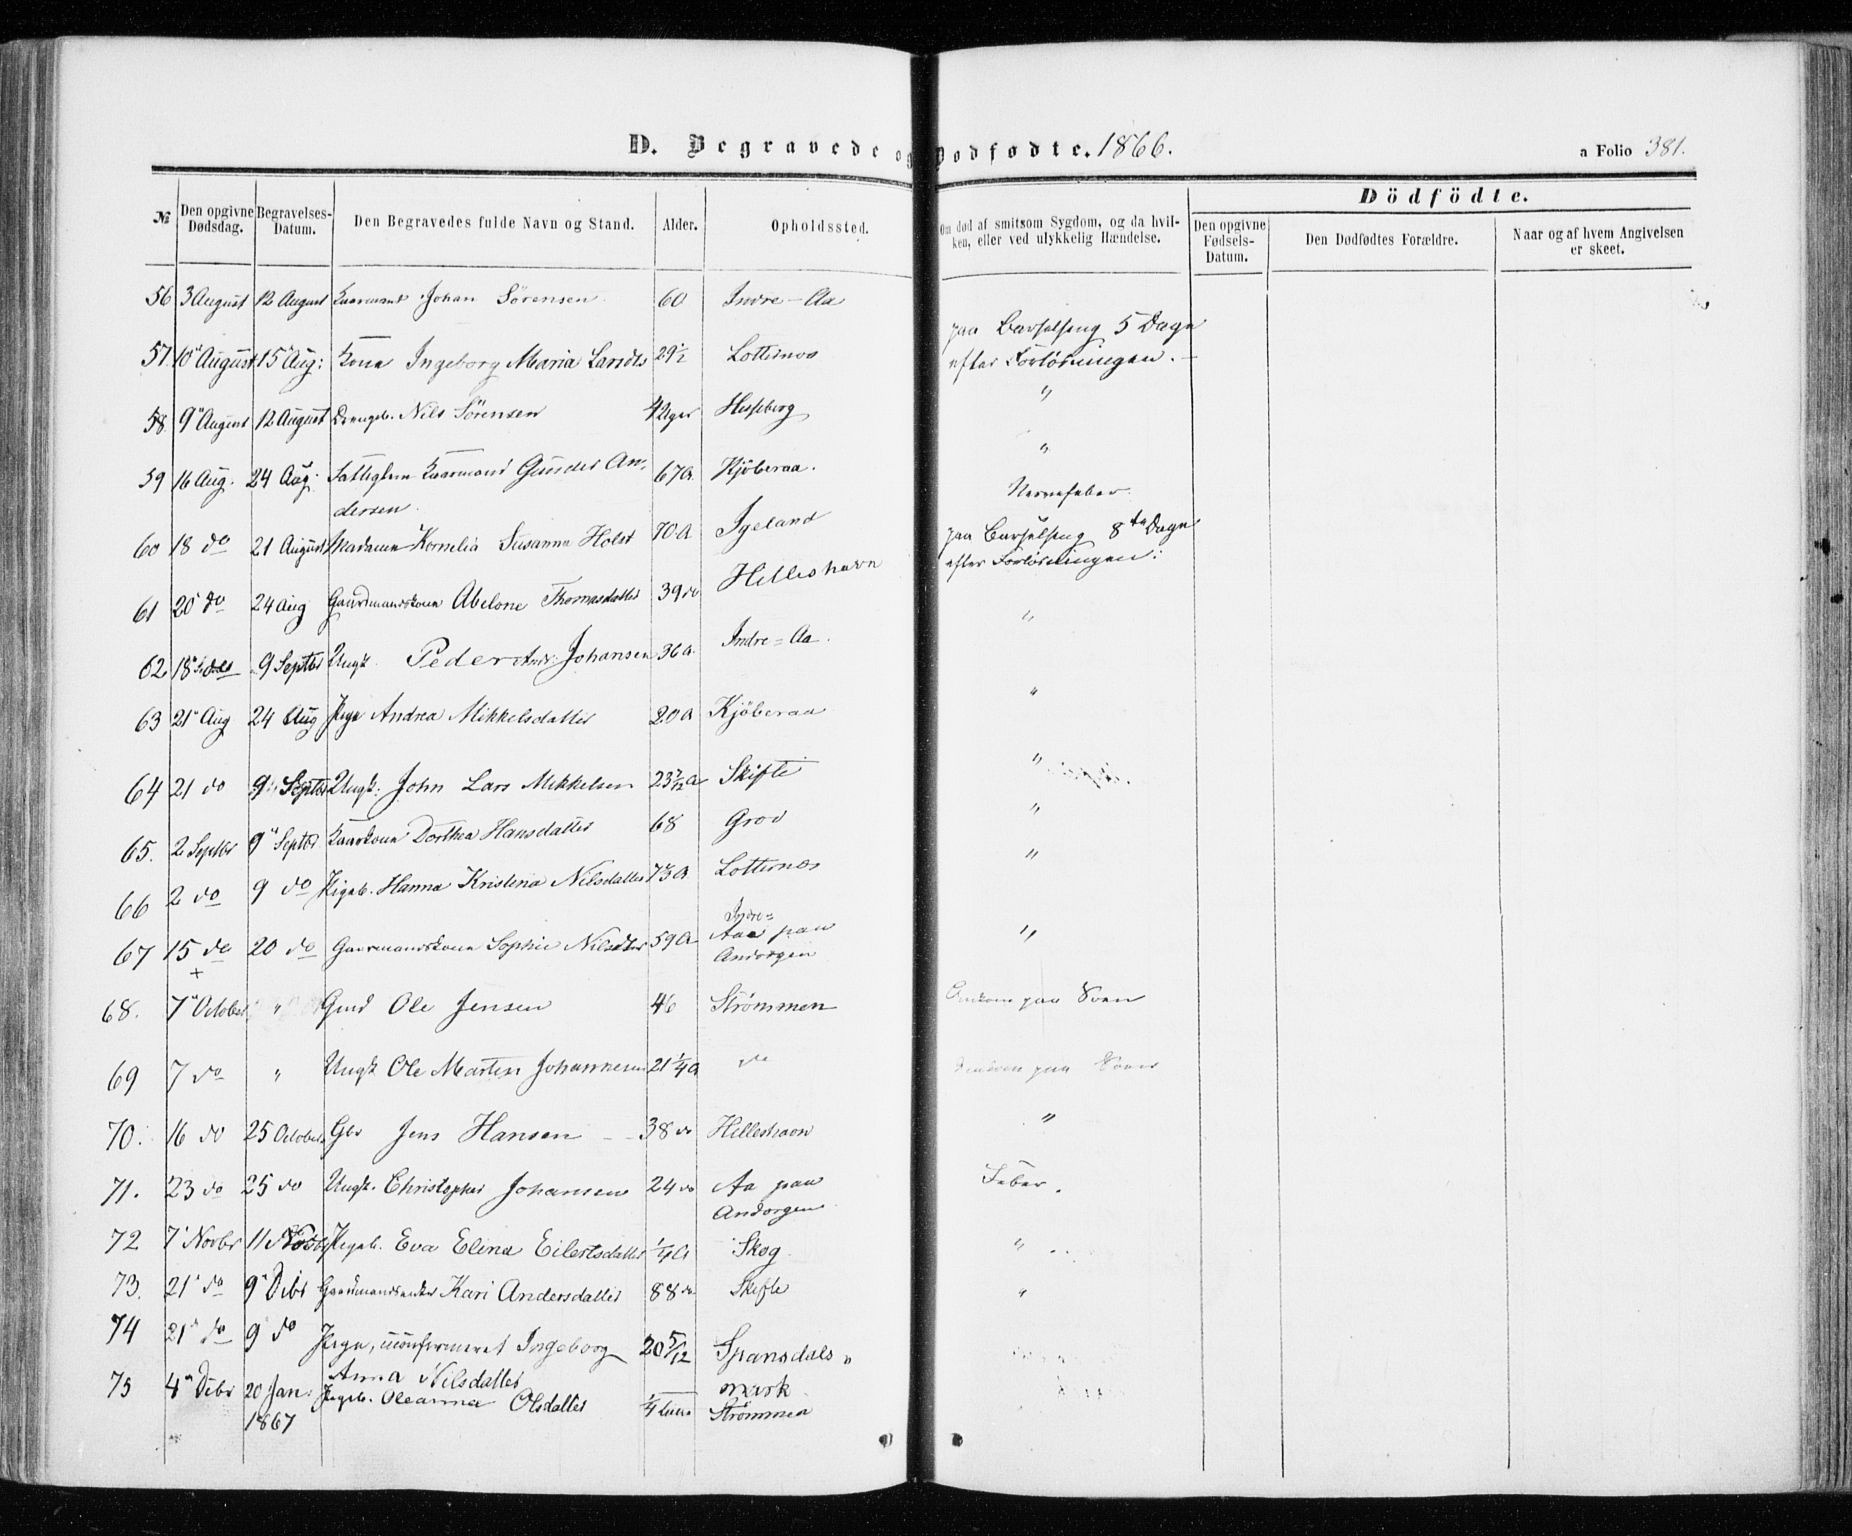 D. Begravede og Dødfødte. 1866. a Folio 381.
Dödfödte.
№ Den opgivne Dødsdag. Begravelses-Datum. Den Begravedes fulde Navn og Stand. Alder. Opholdssted. Om død af smitsom Sygdom, og da hvilken, eller ved ulykkelig Hændelse. Den opgivne Fødsels-Datum. Den Dødfødtes Forældre. Naar og af hvem Angivelsen er skeet.
56 3 August 12 August Kaarmand Johan Sörensen 60 Indre-Aa
57. 10" August 15" Aug: Kone Ingeborg Maria Larsdts 29 ½ Lotternes paa Barselseng 5 Dage
efter Forløsningen.
58. 9" August 12 August Drengeb. Nils Sörensen 4 Uger Hesseberg "
59 16 Aug. 24 Aug. Fattiglem Kaarmand Gunder An- 67 A Kjöberaa. "
dersen.
60 18 do 21 August Madame Kornelia Susanna Holst 70 A Igeland Nervefeber.
61 20" do 24 Aug Gaardmandskone Abelone Thomasdatter 39 do Helleshavn paa Barselseng 8de Dage
efter Forløsningen:
62 18" 9 Septbr Ungk. Peder Andr: Johansen 36 a. Indre=Aa. "
63 21" Aug 24 Aug Pige Andrea Mikkelsdatter 20 A Kjöberaa "
64 21 do 9" Septbr Ungk: John Lars Mikkelsen 23 7/12 A Skifte "
65. 2 Septbr 9" Septbr Kaarkone Dorthea Hansdatter 68 Grov "
66 2 do 9 do Pigeb. Hanna Kristena Nilsdatter Lotternes "
67 15 do 20 do Gaarmandskone Sophie Nilsdtter 59 A Indre=
Aa paa
Andorgen "
68. 7" October " Gmd Ole Jensen 46 Strömmen Omkom paa Søen
69 7 do " Ungk Ole Martin Johannesen 21 ¼ A do Omkom paa Søen
70. 16 do 25 October Gbr Jens Hansen 38 do Helleshavn "
71. 23 do 25 do Ungk. Christopher Johansen 24 do Aa paa
Andorgen Feber.
72 7' Novbr 11 Novbr Pigeb. Eva Elina Eilertsdatter ¼ A Skog "
73. 21" do 9" Debr Kari Andersdatter 88 do Skifte "
74 21" do 9" do Pige, uconfirmeret Ingeborg 20 5/12 Spansdals
Anna Nilsdatter mark
75 4" Debr 20 Jan. Pigeb. Oleanna Olsdatter ¼ Strömmen
1867